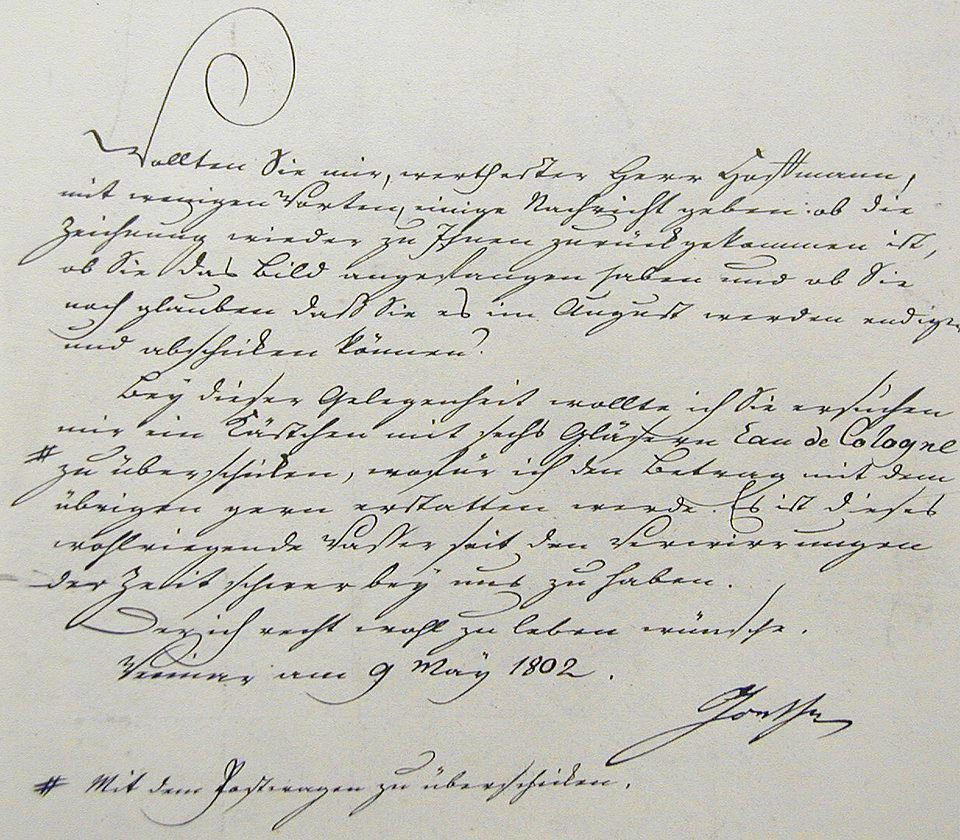 Wollten Sie mir, werthester Herr Hoffmann,
mit wenigen Worten, einige Nachricht geben: ob die
Zeichnung wieder zu Ihnen zurückgekommen ist,
ob Sie das Bild angefangen haben und ob Sie
noch glauben daß Sie es im August werden endigen
und abschicken können.
Bey dieser Gelegenheit wollte ich Sie ersuchen
mir ein Kästchen mit sechs Gläsern Eau de Cologne
# zu überschicken, wofür ich den Betrag mit dem
übrigen gern erstatten werde. Es ist dieses
wohlriegende Wasser seit den Verwirrungen
der Zeit schwer bey uns zu haben.
Der ich recht wohl zu leben wünsche.
Weimar am 9 May 1802.
Goethe
# Mit dem Postwagen zu überschicken.